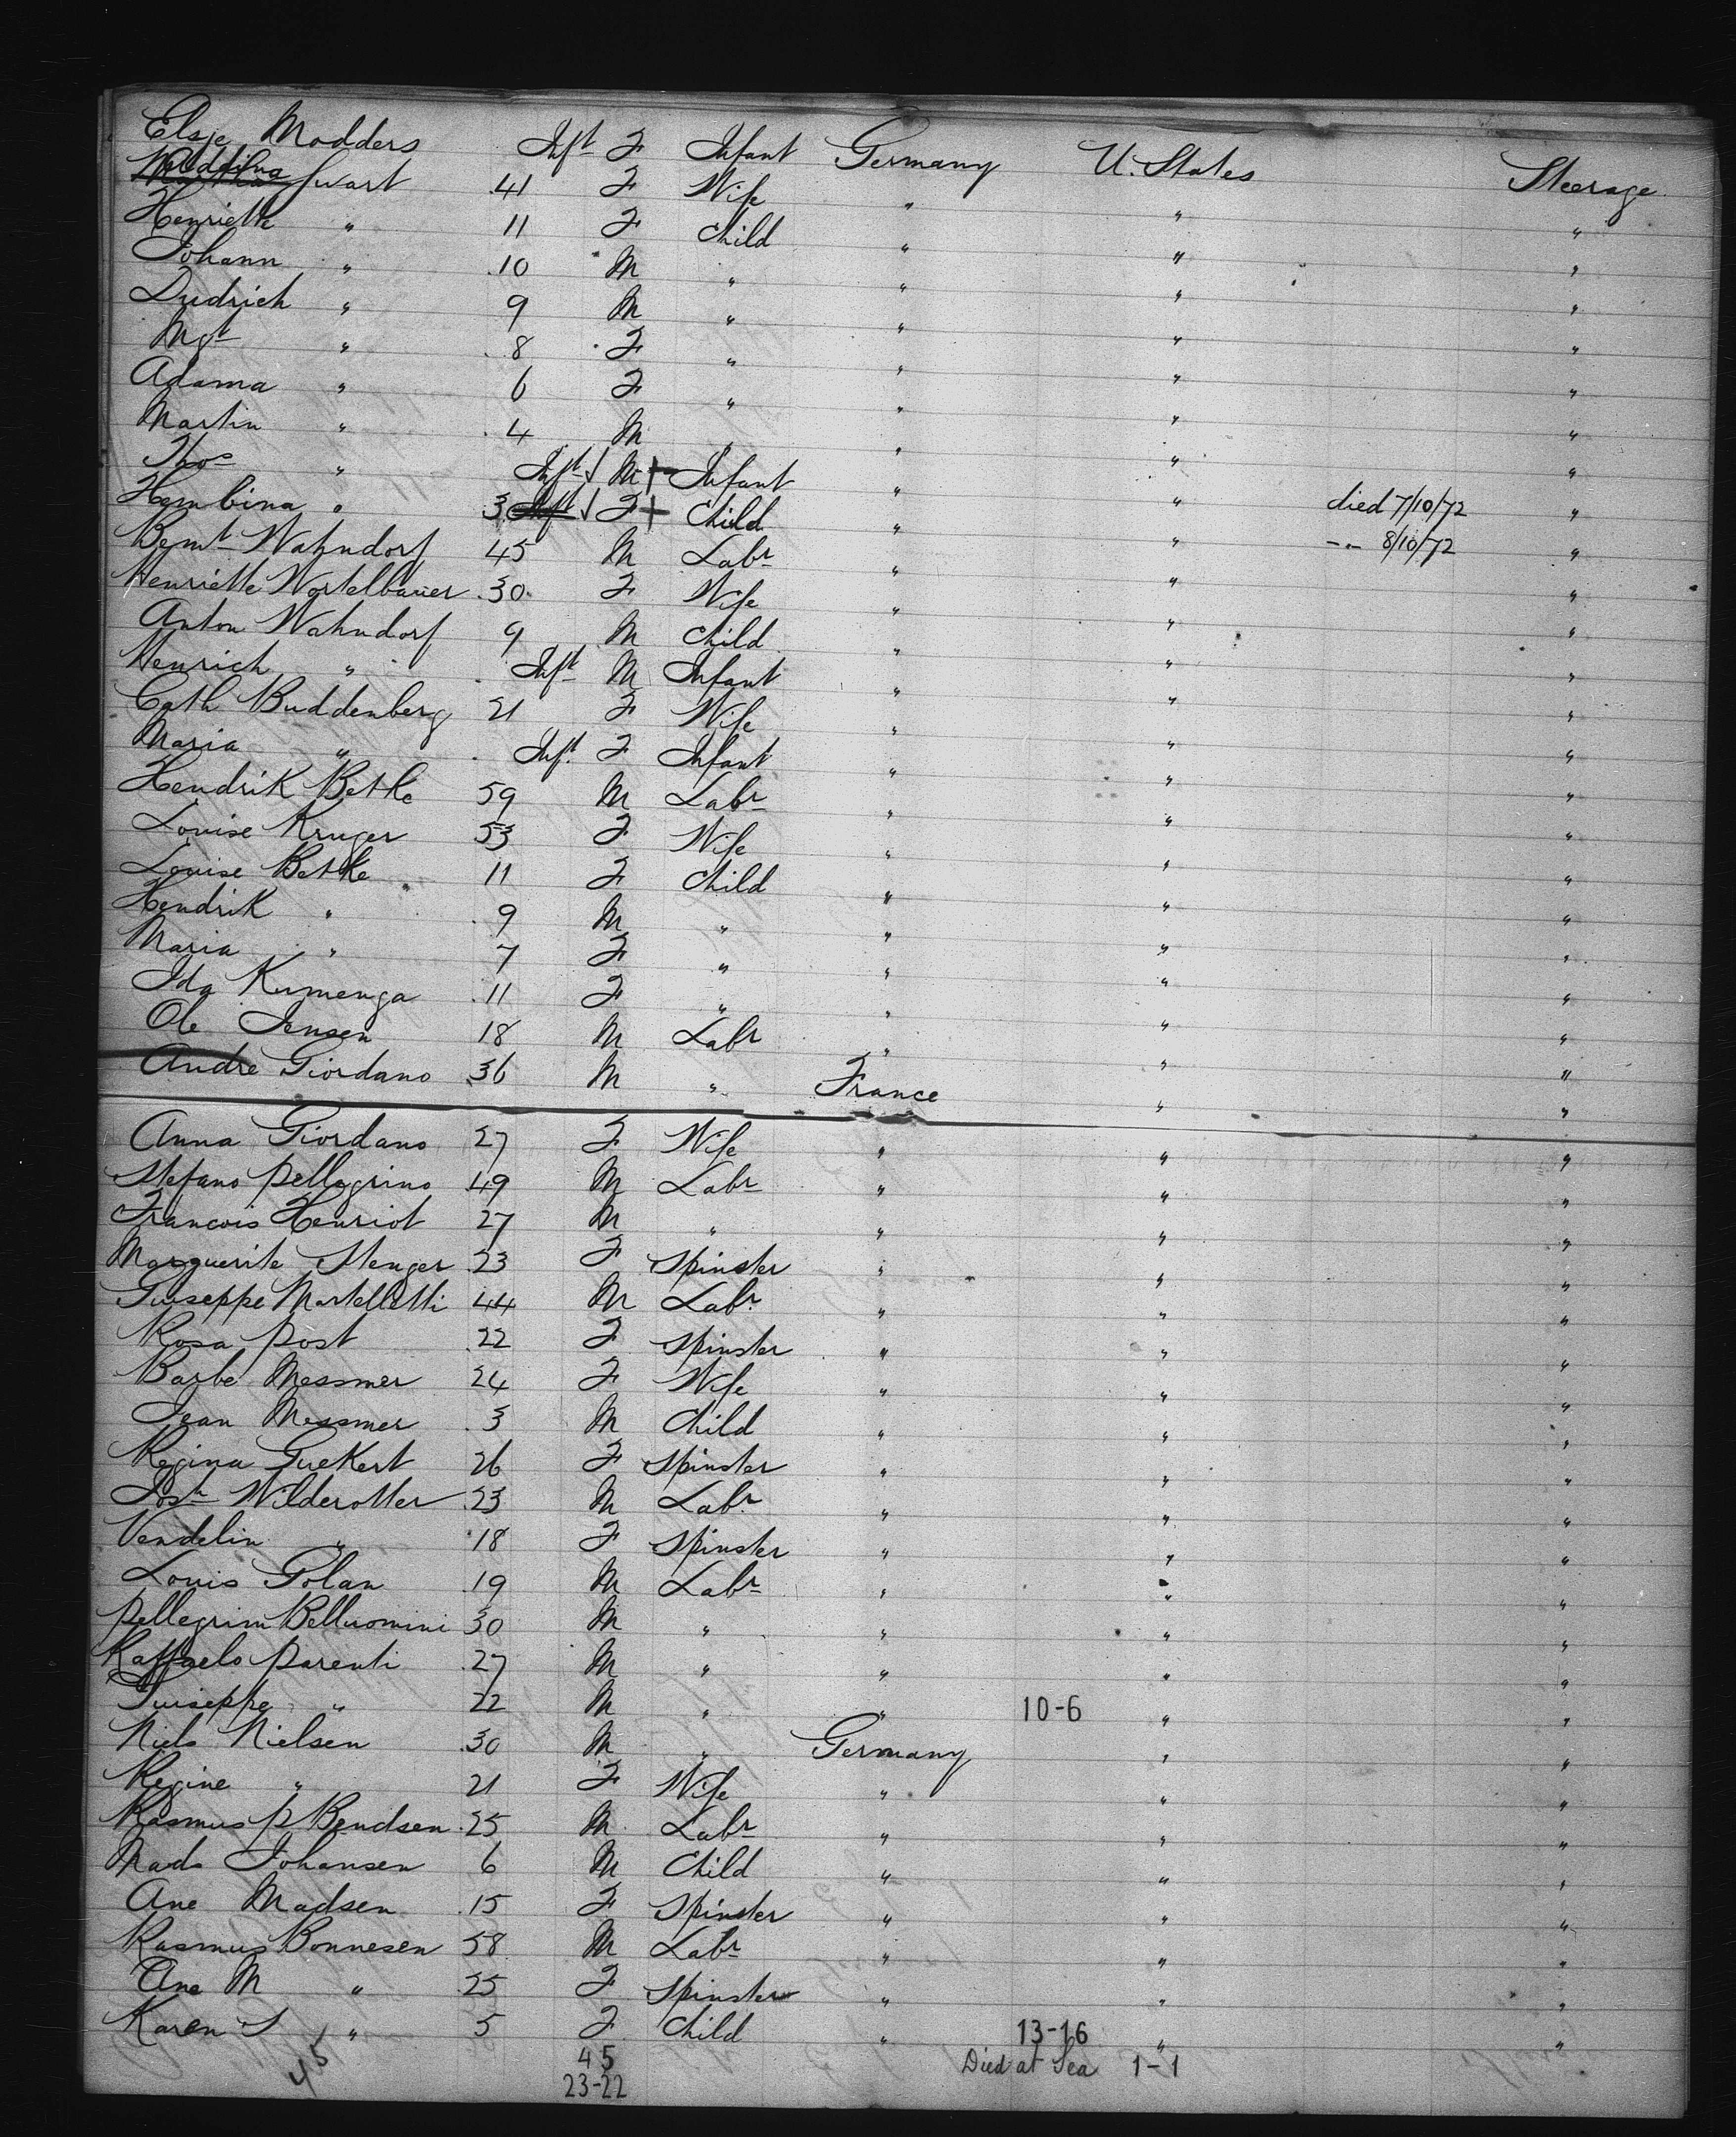 Elsje Modders Inft F Infant Germany U. States Steerage
Meddina Swart 41 F Wife " " "
Henriette " 11 F Child " " "
Johann " 10 M " " " "
Diedrich " 9 M " " " "
Mgt " 8 F " " " "
Adama " 6 F " " " "
Martin " 4 M " " " "
Thos " Inft √ M + Infant " " died 7/10/72 "
Hembina " 3 Inft √ F + Child " " -"- 8/10/72 "
Bernt Wahndorf 45 M Labr " " "
Henriette Wortelbauer 30 F Wife " " "
Anton Wahndorf 9 M Child " " "
Henrich " Inft M Infant " " "
Cath Buddenberg 21 F Wife " " "
Maria " Inft F Infant " " "
Hendrik Bethe 59 M Labr " " "
Louise Kruger 53 F Wife " " "
Louise Bethe 11 F Child " " "
Hendrik " 9 M " " " "
Maria " 7 F " " " "
Ida Kumenga 11 F " " " "
Ole Jensen 18 M Labr " " "
Andre Giordano 36 M " France " "
Anna Giordano 27 F Wife " " "
Stefano Pellegrino 49 M Labr " " "
Francois Henriot 27 M " " " "
Marguerite Stenger 23 F Spinster " " "
Guiseppe Martelletti 44 M Labr " " "
Rosa Post 22 F Spinster " " "
Barbe Messmer 24 F Wife " " "
Jean Messmer 3 M Child " " "
Regina Guekert 26 F Spinster " " "
Josh Wilderotter 23 M Labr " " "
Vendelin " 18 F Spinster " " "
Louis Golan 19 M Labr " " "
Pellegrini Belluomini 30 M " " " "
Raffaelo Parenti 27 M " " " "
Guiseppe " 22 M " " 10-6 " "
Niels Nielsen 30 M " Germany " "
Regine " 21 F Wife " " "
Rasmus P Bendsen 25 M Labr " " "
Mads Johansen 6 M Child " " "
Ane Madsen 15 F Spinster " " "
Rasmus Bonnesen 58 M Labr " " "
Ane M " 25 F Spinster " " "
Karen S " 5 F Child " 13-16 " "
45 45 Died at Sea 1-1
23-22